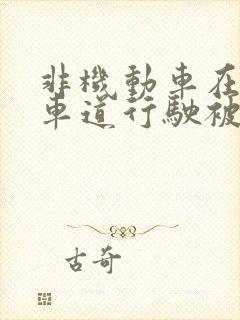 非機動車在
車道行駛被
古奇